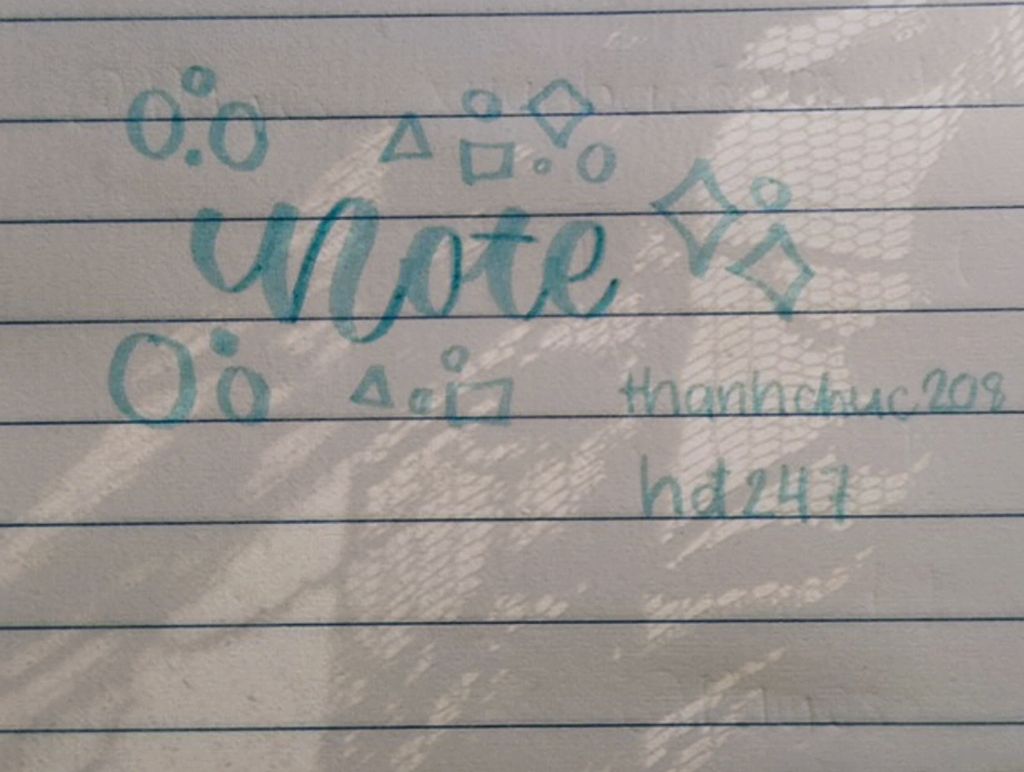 Note
thanhchuc208
hd247